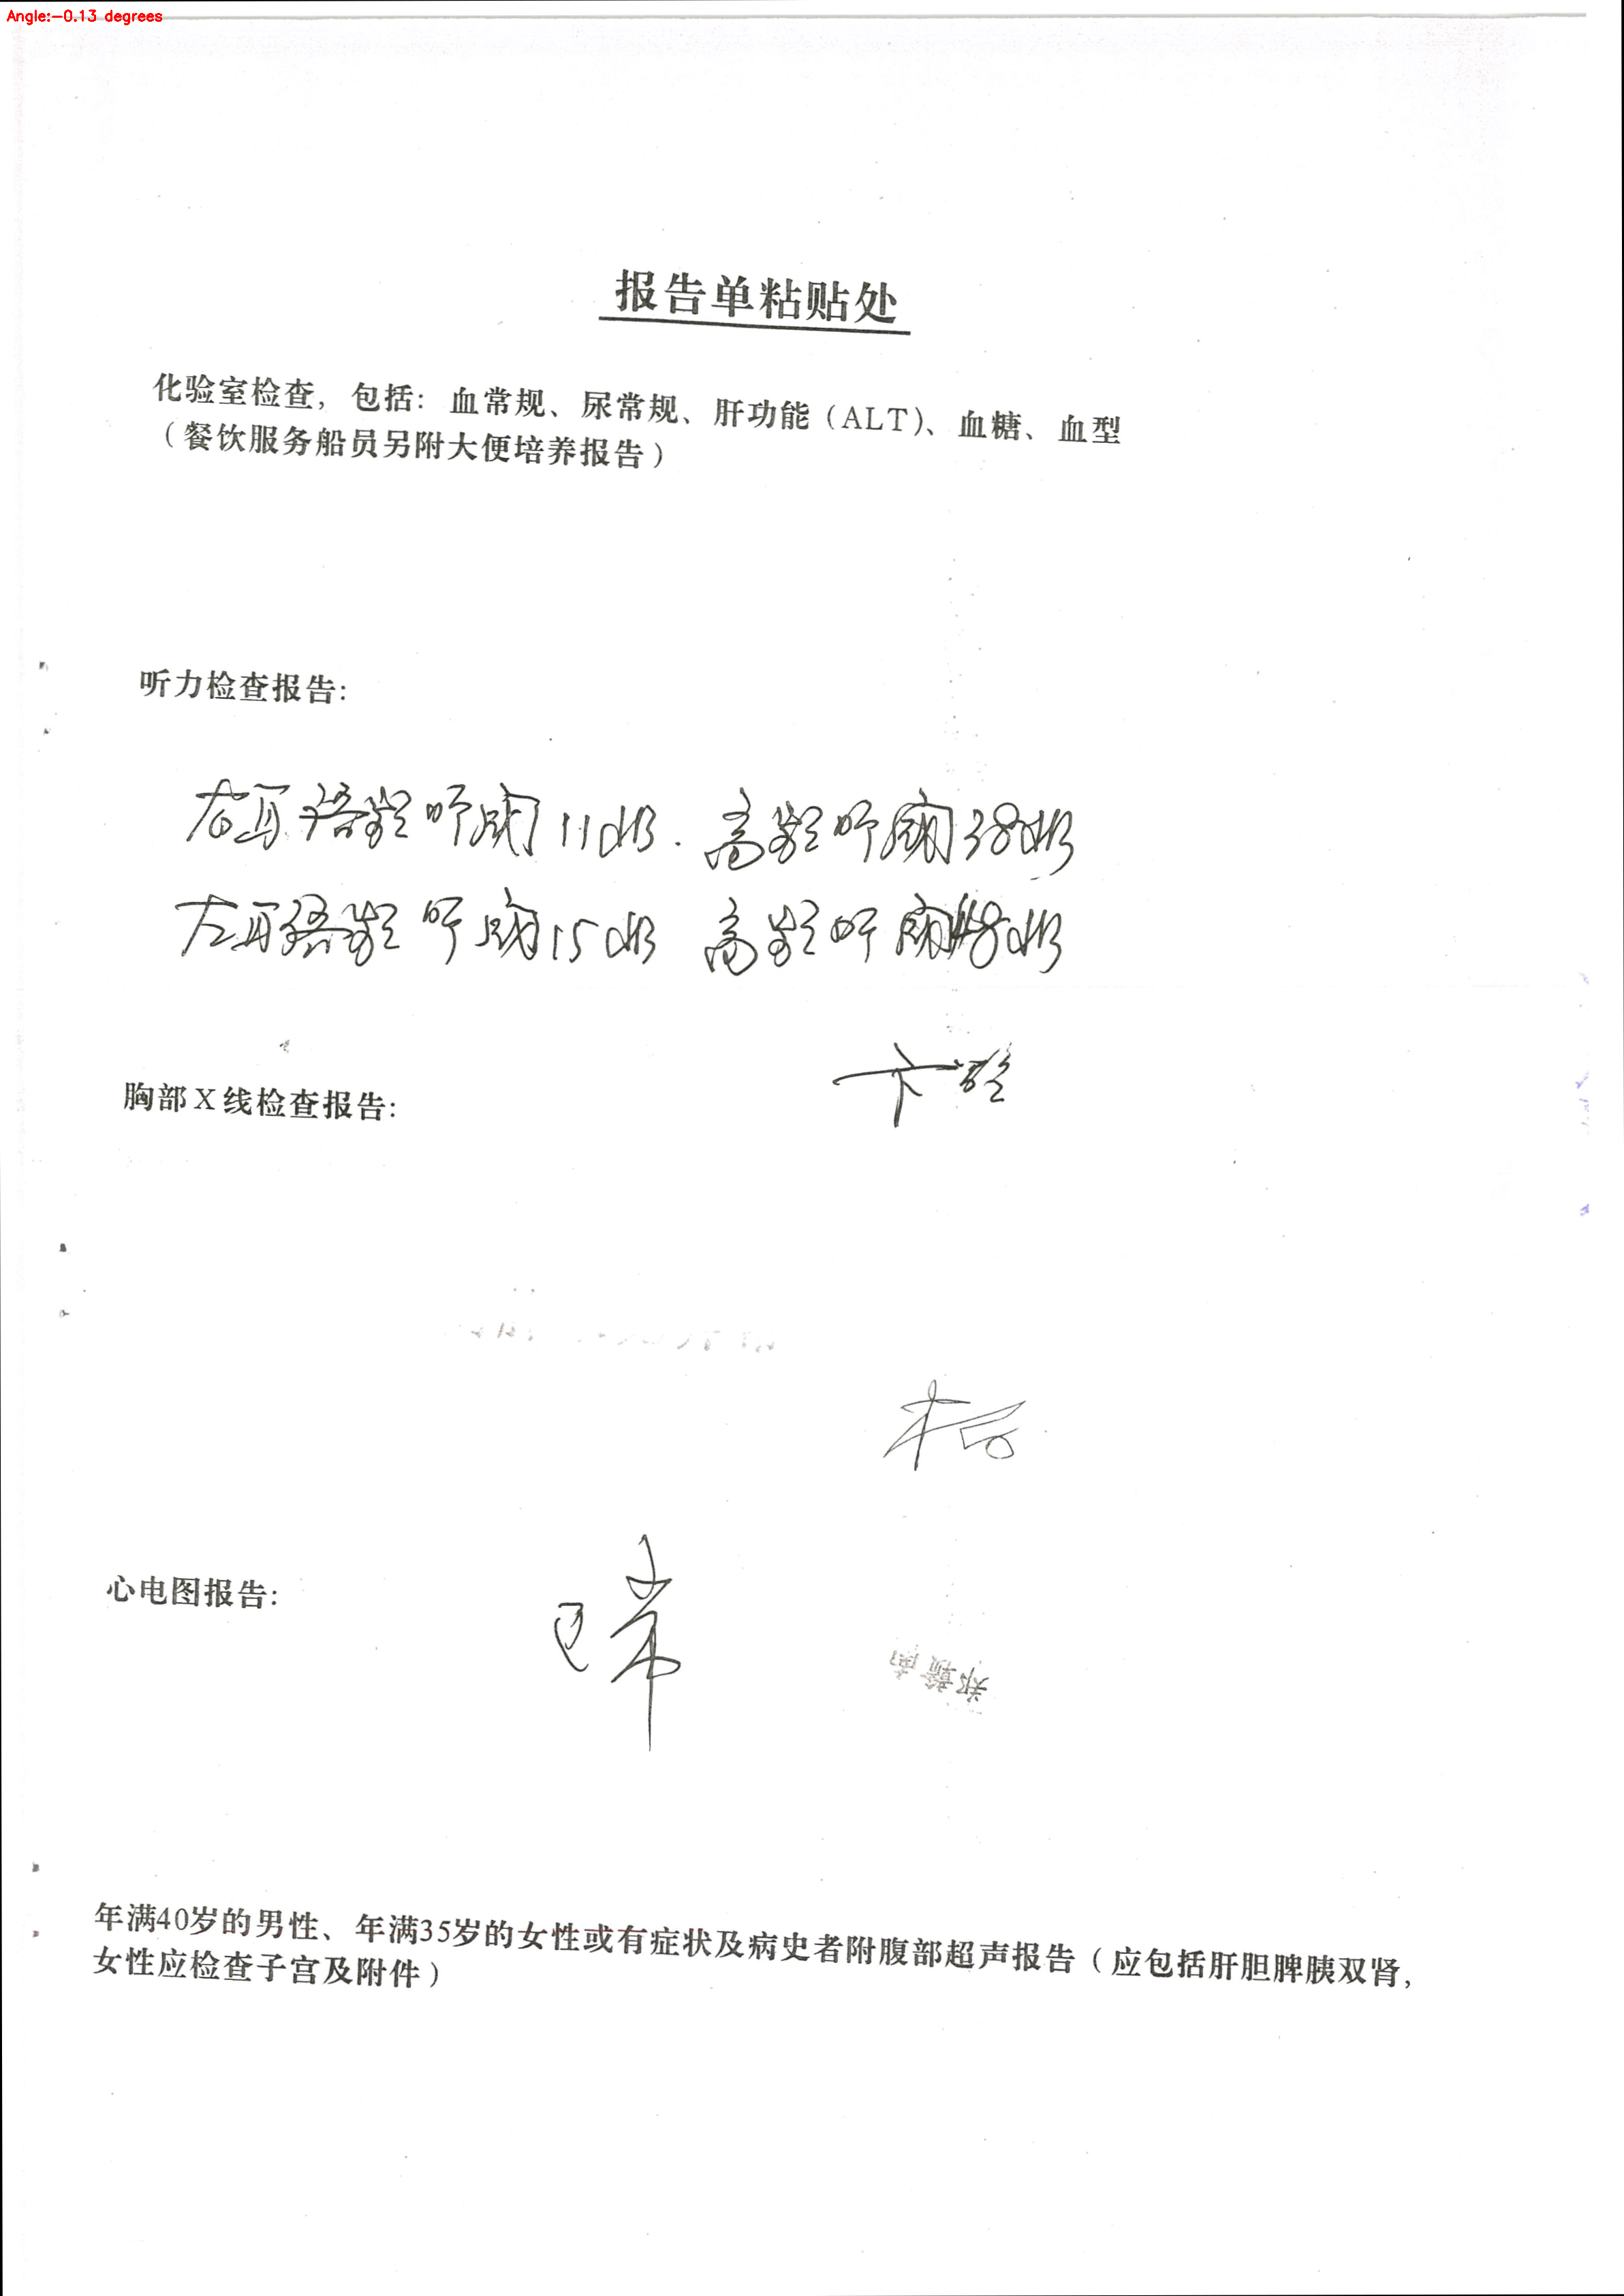 Angle:-0.13 degrees
报告单粘贴处
化验室检查，包括：血常规、尿常规、肝功能（ALT）、血糖、血型
（餐饮服务船员另附大便培养报告）
听力检查报告：
右耳语频听阈11dB. 高频听阈38dB
左耳语频听阈15dB 高频听阈48dB
胸部X线检查报告：
心电图报告：
正常
郑赣南
年满40岁的男性、年满35岁的女性或有症状及病史者附腹部超声报告（应包括肝胆脾胰双肾，
女性应检查子宫及附件）